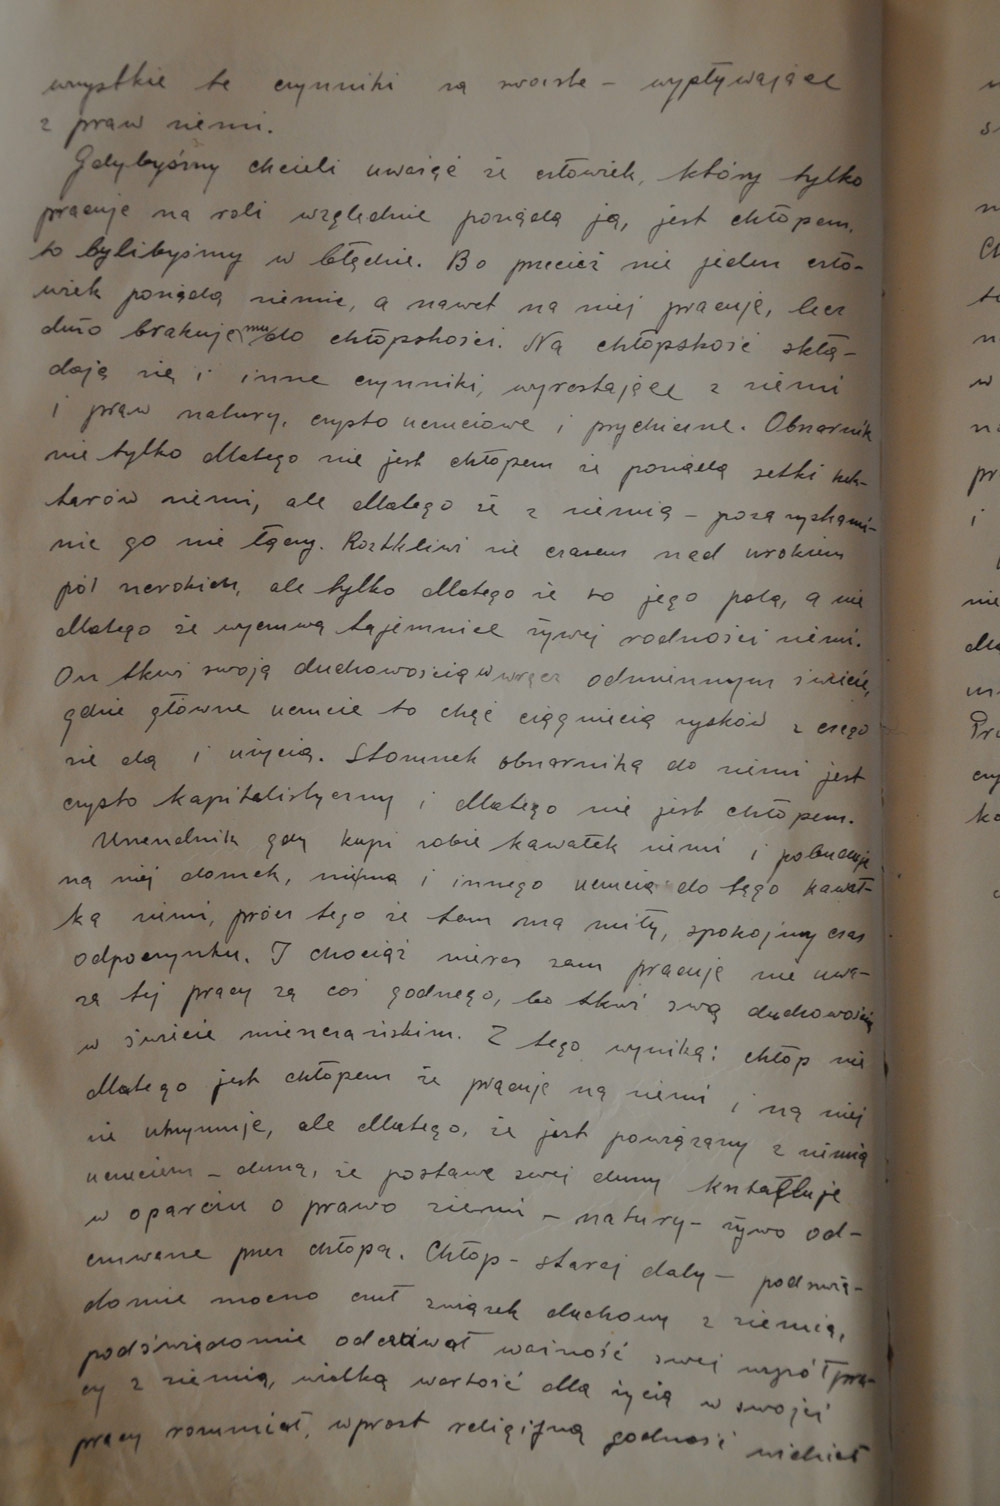 wszystkie te czynniki są swoiste – wypływające
z praw ziemi.
Gdybyśmy chcieli uważać że człowiek, który tylko
pracuje na roli względnie posiada ją, jest chłopem,
to bylibyśmy w błędzie. Bo przecież nie jeden czło-
wiek posiada ziemię, a nawet na niej pracuje, lecz
dużo brakuje mu do chłopskości. Na chłopskość skła-
dają się i inne czynniki, wyrastające z ziemi
i praw natury, czysto uczuciowe i psychiczne. Obszarnik
nie tylko dlatego nie jest chłopem że posiada setki hek-
tarów ziemi, ale dlatego że z ziemią – poza zyskami –
nic go nie łączy. Roztkliwi się czasem nad urokiem
pól szerokich, ale tylko dlatego że to jego pola, a nie
dlatego że wyczuwa tajemnice żywej rodności ziemi.
On tkwi swoją duchowością w wręcz odmiennym świecie,
gdzie główne uczucie to chęć ciągnięcia zysków z czego
się da i użycia. Stosunek obszarnika do ziemi jest
czysto kapitalistyczny i dlatego nie jest chłopem.
Urzędnik gdy kupi sobie kawałek ziemi i pobuduje
na niej domek, nie ma i innego uczucia do tego kawał-
ka ziemi, prócz tego że tam ma miły, spokojny czas
odpoczynku. I chociaż nieraz sam pracuje nie uwa-
ża tej pracy za coś godnego, bo tkwi swą duchowością
w świecie mieszczańskim. Z tego wynika: chłop nie
dlatego jest chłopem że pracuje na ziemi i na niej
się utrzymuje, ale dlatego, że jest powiązany z ziemią
uczuciem – duszą, że postawę swej duszy kształtuje
w oparciu o prawo ziemi – natury – żywo od-
czuwane przez chłopa. Chłop – starej daty – podświa-
domie mocno czuł związek duchowy z ziemią,
podświadomie odczuwał ważność swej współpra-
cy z ziemią, wielką wartość dla życia w swojej
pracy rozumiał, wprost religijną godność widział